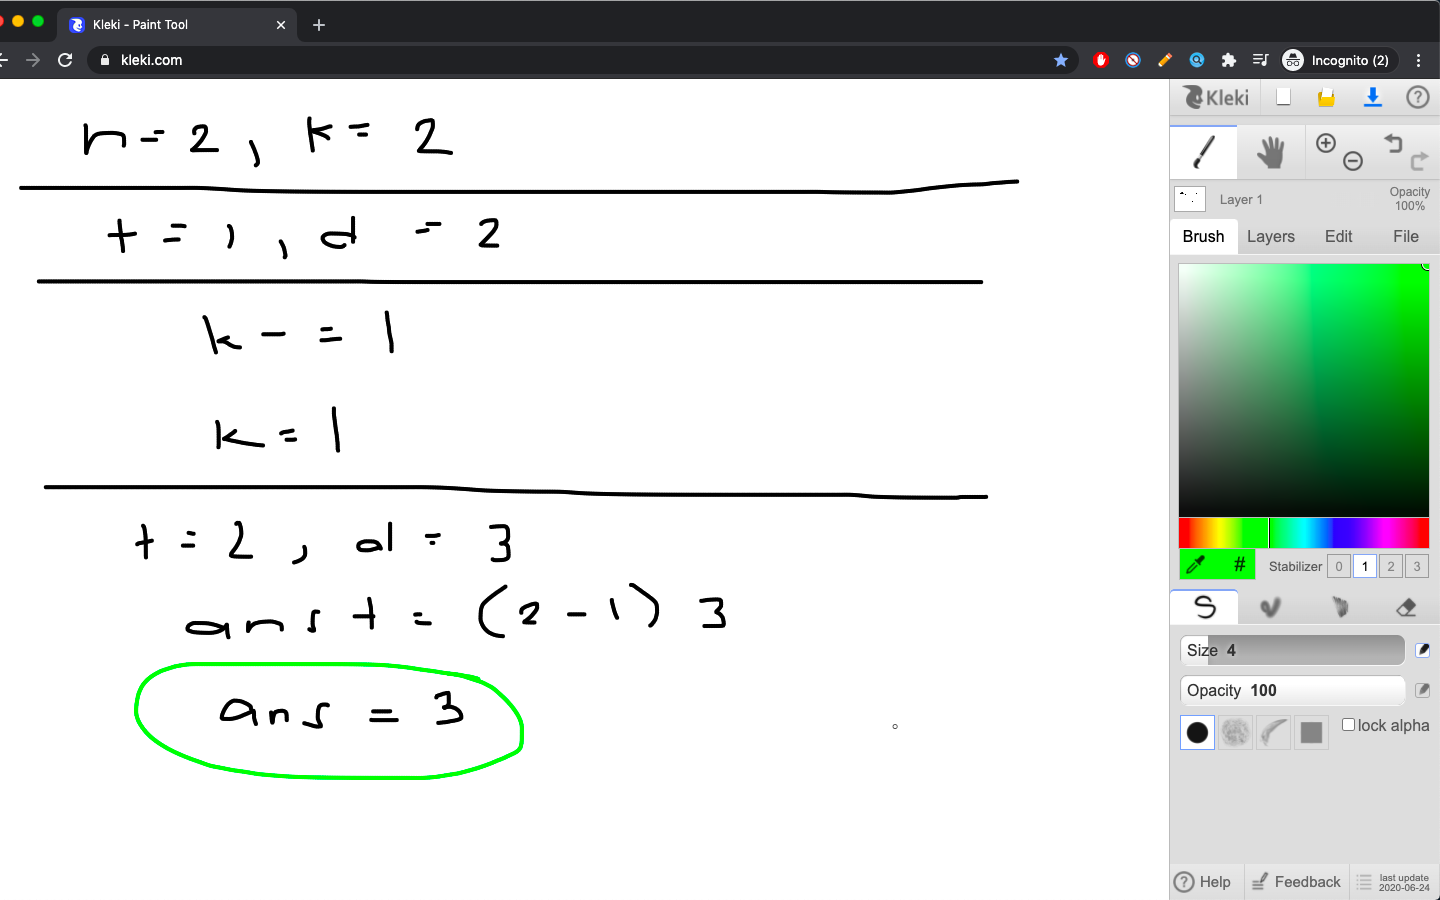 Kleki - Paint Tool
kleki.com
Incognito (2)
n = 2 , k = 2
t = 1 , d = 2
k - = 1
k = 1
t = 2 , d = 3
ans + = (2 - 1) 3
ans = 3
Kleki
Layer 1
Opacity
100%
Brush Layers Edit File
#
Stabilizer 0 1 2 3
Size 4
Opacity 100
lock alpha
Help
Feedback
last update
2020-06-24